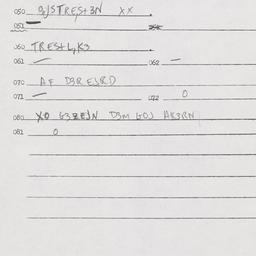 050 9/STREST3N XX
051 —
060 TREST L,K3
061 — 062 —
070 AF D3R EJRD
071 — 072 0
080 XO G3ZEJN D3M GOJ AK3RN
081 0